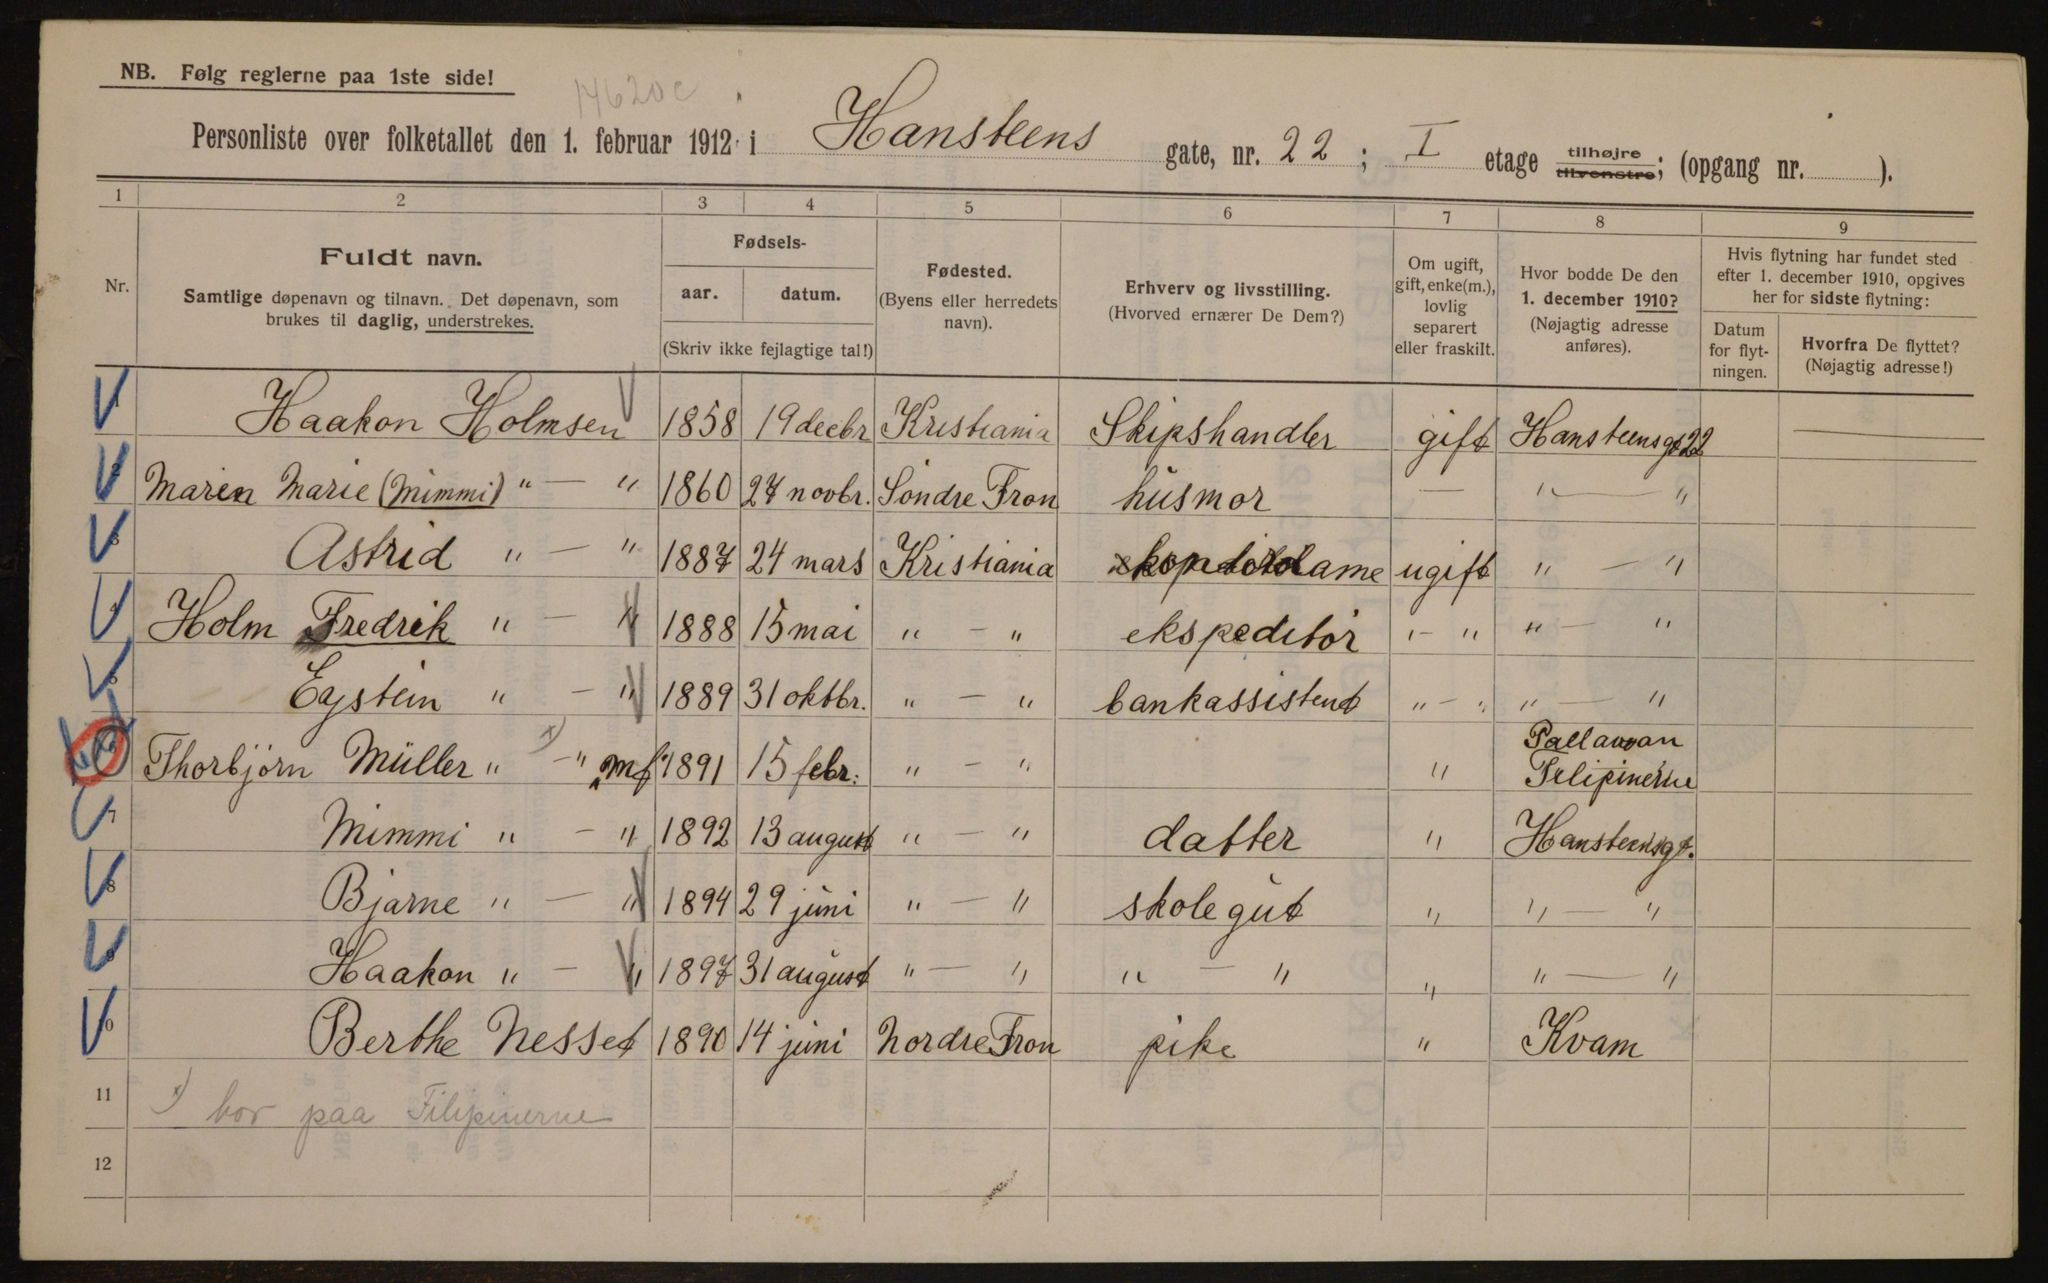 NB. Følg reglerne paa 1ste side!
14620c
Personliste over folketallet den 1. februar 1912 i Hansteens gate, nr. 22 ; I etage tilhøjre tilvenstre; (opgang nr. ).
1 2 3 4 5 6 7 8 9
Nr.
Fuldt navn.
Samtlige døpenavn og tilnavn. Det døpenavn, som
brukes til daglig, understrekes.
Fødsels-
aar. datum.
(Skriv ikke fejlagtige tal!)
Fødested.
(Byens eller herredets
navn).
Erhverv og livsstilling.
(Hvorved ernærer De Dem?)
Om ugift,
gift, enke(m.),
lovlig
separert
eller fraskilt.
Hvor bodde De den
1. december 1910?
(Nøjagtig adresse
anføres).
Hvis flytning har fundet sted
efter 1. december 1910, opgives
her for sidste flytning:
Datum
for flyt-
ningen.
Hvorfra De flyttet?
(Nøjagtig adresse!)
1 Haakon Holmsen 1858 19 decbr Kristiania Skipshandler gift Hansteensgt 22 —
2 Maren Marie (Mimmi) " — " 1860 27 novbr. Söndre Fron húsmor — " — "
3 Astrid " — " 1887 24 mars Kristiania ugift " — "
4 Holm Fredrik " — " 1888 15 mai " — " ekspeditör " — " " — "
5 Eystein " — " 1889 31 oktbr. " — " bankassistent " — " " — "
6 Thorbjörn Müller " — " x) mf 1891 15 febr. " — " " Pallawan Filipinerne
7 Mimmi " — " 1892 13 august " — " datter " Hansteensgt.
8 Bjarne " — " 1894 29 júni " — " skolegút " " — "
9 Haakon " — " 1897 31 aúgust " — " " — " " " — "
10 Berthe Nesset 1890 14 júni Nordre Fron pike " Kvam
11 x) bor paa Filipinerne
12